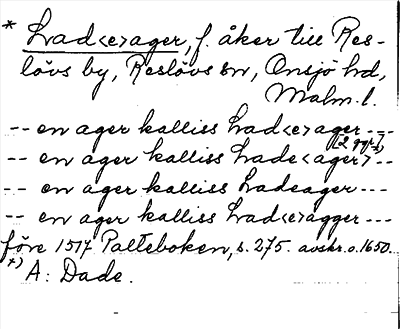 * Lad<e>ager, f. åker till Res-
lövs by, Reslövs sn, Onsjö hd,
Malm. l.
-- en ager kalliss Lad<e>ager ---
[2 ggr]
-- en ager kalliss Lade<ager> --
-- en ager kalliss Ladeager ---
-- en ager kalliss Lad<e>agger ---
före 1517 Palteboken, s. 275. avskr. o. 1650.
*) A: Dade.